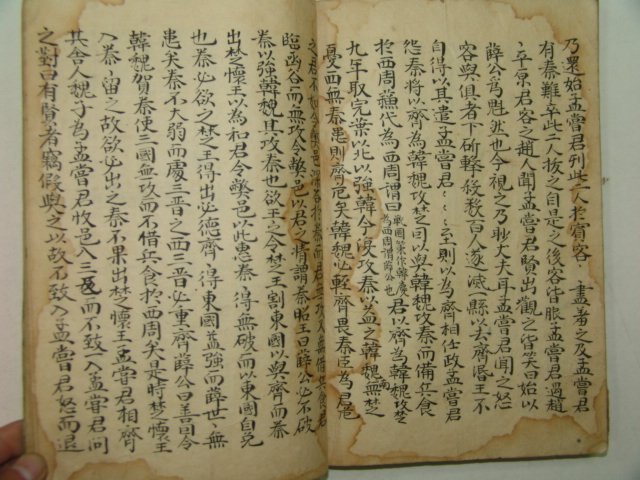 乃還始孟嘗君列此二人於賓客〻盡羞之及孟嘗君
有秦難卒此二人拔之自是之後客皆服孟嘗君過趙
〻平原君客之趙人聞孟嘗君賢出觀之皆笑曰始以
薛公為魁然也今視之乃眇丈夫耳孟嘗君聞之怒
客與俱者下斫擊殺數百人遂滅一縣以去齊湣王不
自得以其遣孟嘗君〻〻〻至則以為齊相任政孟嘗君
怨秦將以齊為韓魏攻楚司以與韓魏攻秦而借兵食
於西周蘇代為西周謂曰戰國策作韓慶為西周謂薛公也君以齊為韓魏攻楚
九年取宛葉以北以強韓今復攻秦以益之韓魏南無楚
憂西無秦患則齊危矣韓魏必輕齊畏秦臣為君危
之君不如令敝邑深合於秦而君無攻又無借兵食君
臨函谷而無攻令敝邑以君之情謂秦昭王曰薛公必不破
秦以強韓魏其攻秦也欲王之令楚王割東國以與齊而秦
出楚懷王以為和君令敝邑以此惠秦〻得無破而以東國自免
也秦必欲之楚王得出必德齊〻得東國益強而薛世〻無
患矣秦不大弱而處三晉之西三晉必重齊薛公曰善因令
韓魏賀秦使三國無攻而不借兵食於西周矣是時楚懷王
入秦〻留之故欲必出之秦不果出楚懷王孟嘗君相齊
其舍人魏子為孟嘗君收邑入三反而不致一入孟嘗君問
之對曰有賢者竊假與之以故不致入孟嘗君怒而退